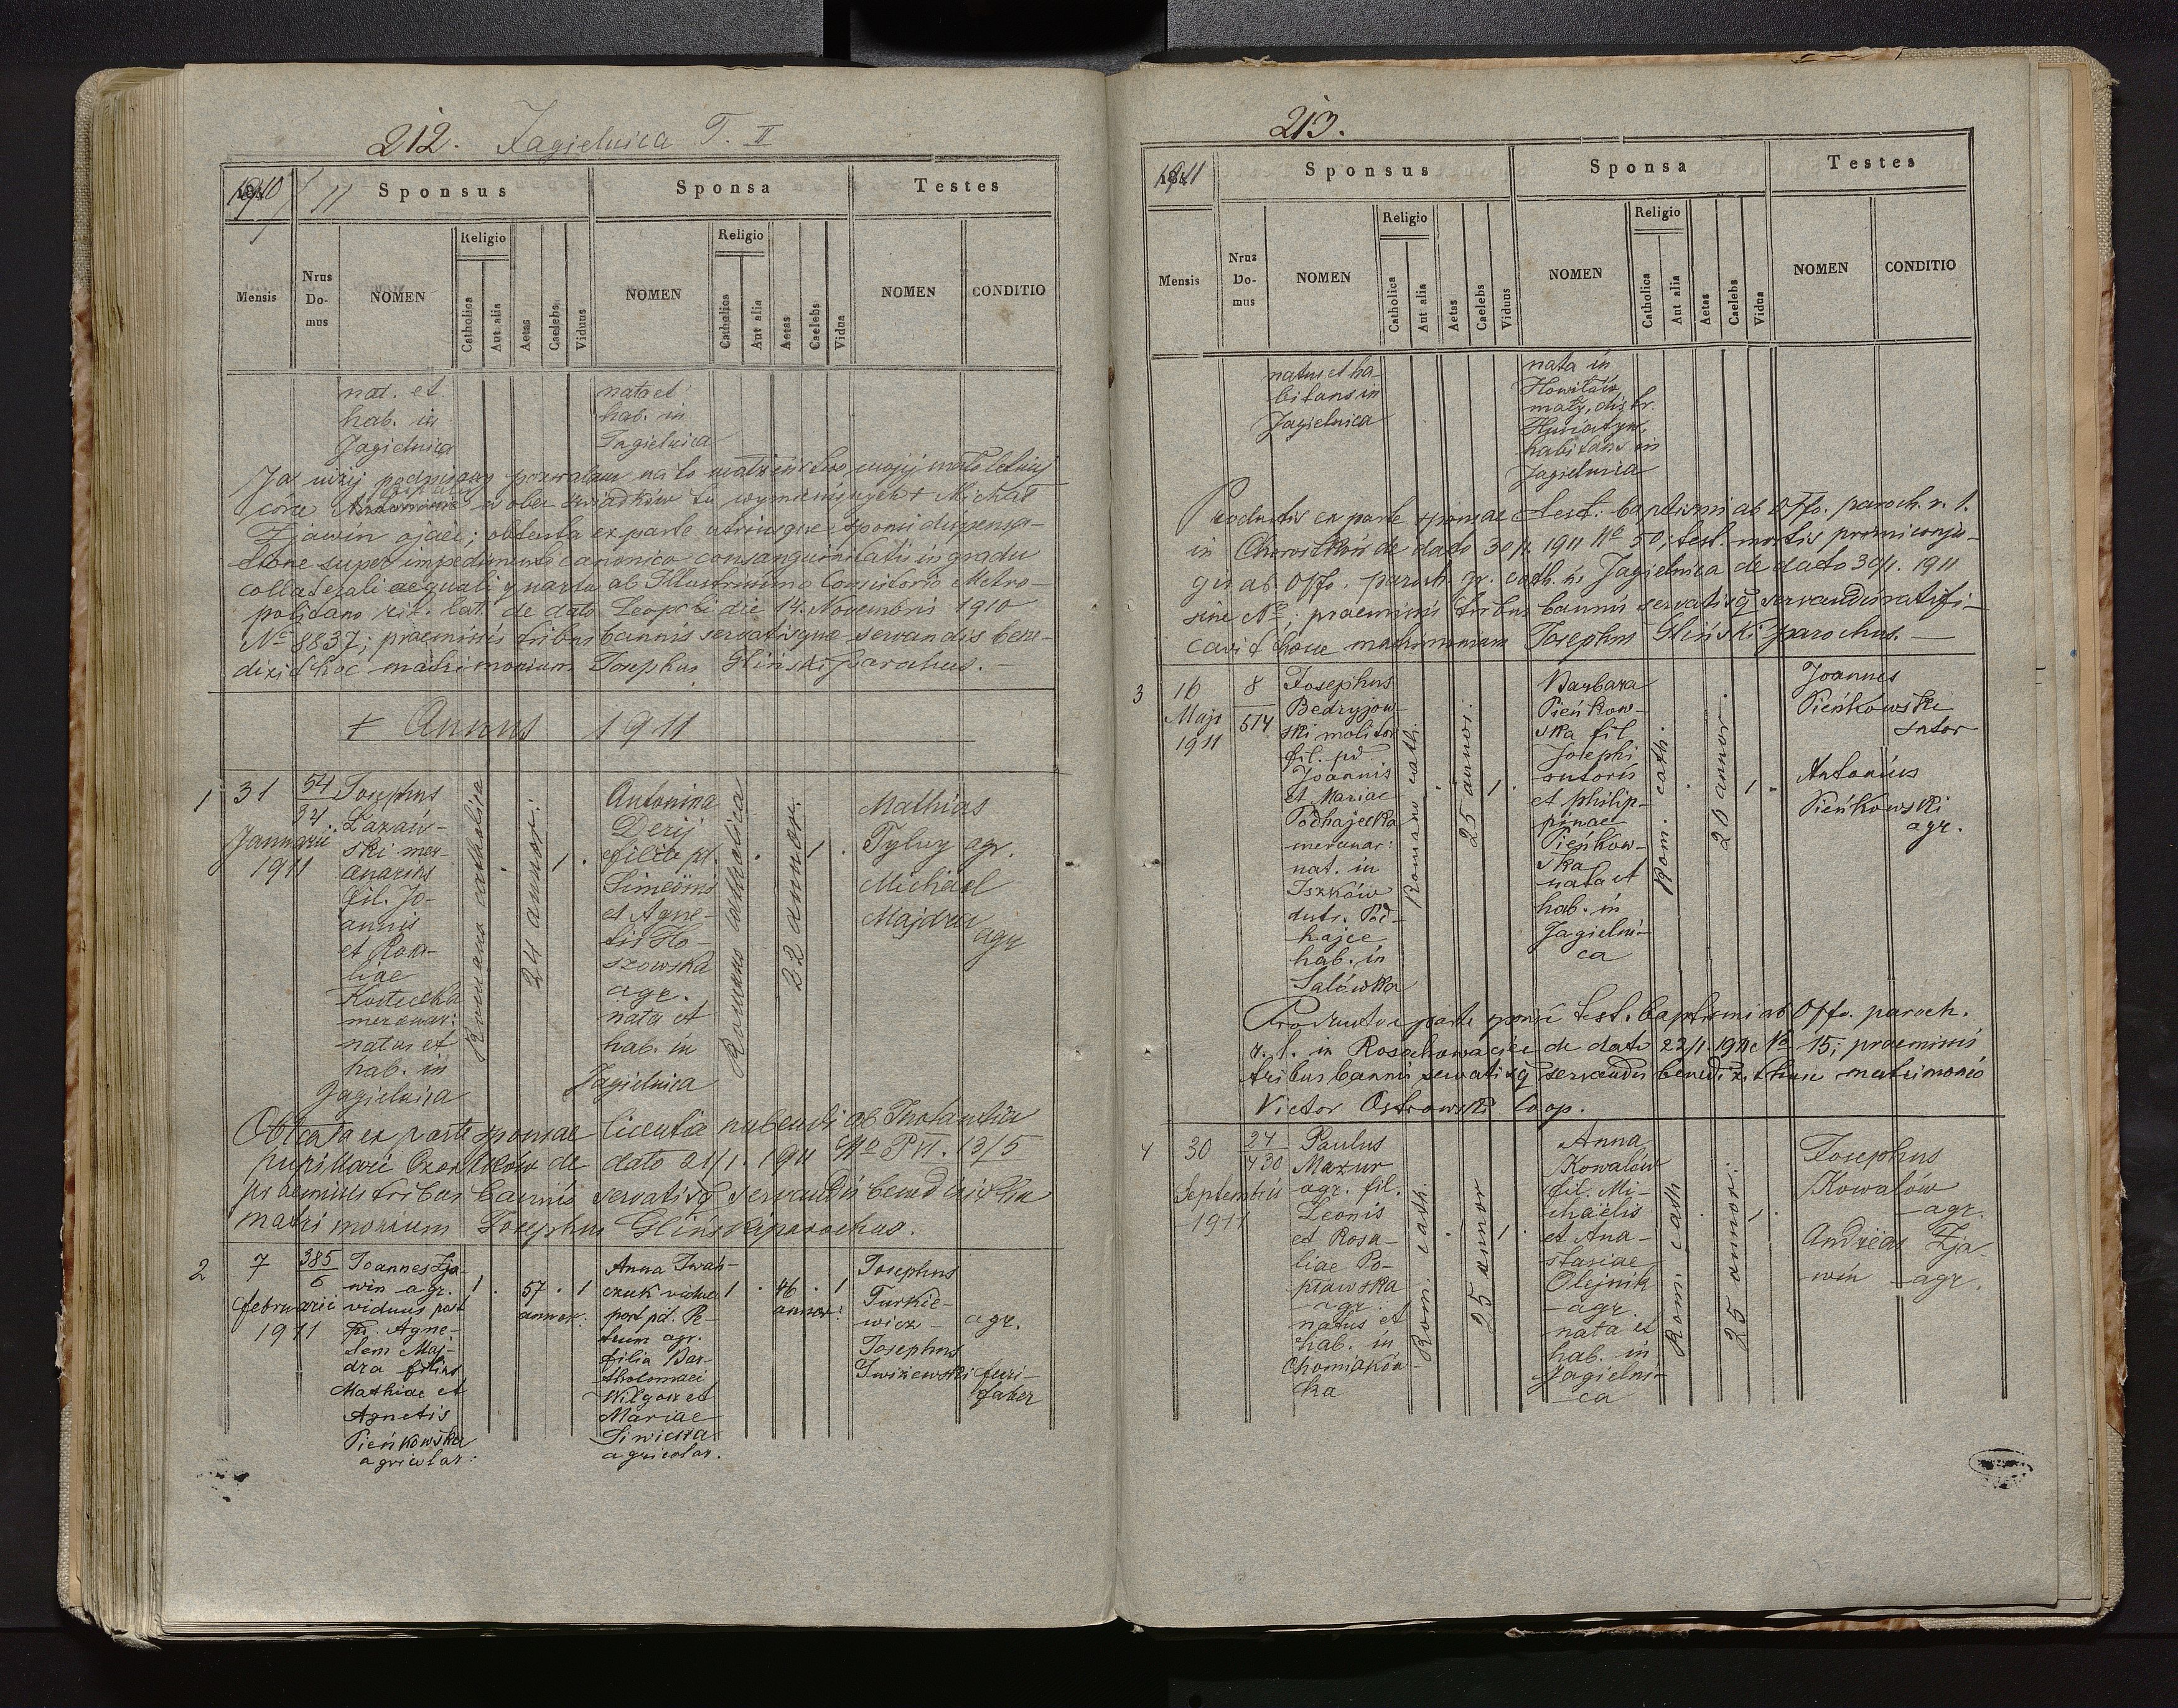 212. Jagielnica T. II
1910/11
Sponsus
Sponsa
Testes
Mensis
Nrus Do-mus
NOMEN
Religio
Catholica
Aut alia
Aetas
Caelebs
Viduus
NOMEN
Religio
Catholica
Aut alia
Aetas
Caelebs
Vidua
NOMEN
CONDITIO
nat. et
hab. in
Jagielnica
nata et
hab. in
Jagielnica
Ja niżej podpisany pozwalam na to małżeństwo mojej małoletniej
córce w obec świadków tu wymienionych + Michał
Zjawin ojciec; obtenta ex parte utriusque sponsi dispensa-
tione super impedimento canonico consanguinitatis in gradu
collaterali aequali quarto ab Illustrissimo Consistorio Metro-
politano rit. lat. de dato Leopoli die 14. Novembris 1910
No 8837; praemissis tribus bannis servatisque servandis bene-
dixit hoc matrimonium Josephus Gliński parochus.
+ Annus 1911
1
31
Januarii
1911
54
94
Josephus
Lazań-
ski mer-
cenarius
fil. Jo-
annis
et Rosa-
liae
Kostecka
mercenar:
natus et
hab. in
Jagielnica
Romano catholica
24 annor:
1
Antonina
Derij
filia pt.
Simeonis
et Agne-
tis Ho-
szowska
agr.
nata et
hab. in
Jagielnica
Romano catholica
22 annor.
1
Mathias
Tylny agr.
Michael
Majdan
agr
Obtenta ex parte sponsae licentia nubendi ab Instantia
pupillari Czortków de dato 21/1. 1911 No P VI. 13/5
praemissis tribus bannis servatisq servandis benedixit hoc
matrimonium Josephus Gliński parochus.
2
7
februarii
1911
385
6
Joannes Zja-
win agr.
viduus post
pt. Agne-
tem Maj-
dra filius
Mathiae et
Agnetis
Pieńkowska
agricolar:
1 . 57 . 1
annor:
Anna Iwań-
czuk vidua
post pt. Pe-
trum agr.
filia Bar-
tholomaei
Wilgosz et
Mariae
Siwicka
agricolar.
1 . 46 . 1
annor:
Josephus
Turkie-
wicz agr.
Josephus
Iwizewski ferri-
faber
213.
1911
Sponsus
Sponsa
Testes
Mensis
Nrus Do-mus
NOMEN
Religio
Catholica
Aut alia
Aetas
Caelebs
Viduus
NOMEN
Religio
Catholica
Aut alia
Aetas
Caelebs
Vidua
NOMEN
CONDITIO
natus et ha-
bitans in
Jagielnica
nata in
Howiłów
mały, distr.
Husiatyn,
habitans in
Jagielnica
Productis ex parte sponsae test. baptismi ab Offo. paroch. r. l.
in Chorostków de dato 30/1. 1911 No 50; test. mortis primi conju-
gis ab Offo. paroch. gr. cath. in Jagielnica de dato 30/1. 1911
sine No; praemissis tribus bannis servatisq servandis ratifi-
cavit hocce matrimonium Josephus Gliński parochus.
3
16
Maji
1911
8
514
Josephus
Bedryjow-
ski molitor
fil. pd
Joannis
et Mariae
Podhajecka
mercenar:
nat. in
Iszków
distr. Pod-
hajce
hab. in
Salówka
Romano cath.
25 annor:
1
Barbara
Pieńkow-
ska fil
Josephi
sutoris
et Philip-
pinae
Pieńkow-
ska
nata et
hab. in
Jagielni-
ca
Rom. cath.
20 annor.
1
Joannes
Pieńkowski
sutor
Antonius
Pieńkowski
agr.
Producto e parte sponsi test. baptismi ab Offo. paroch.
r. l. in Rosochowaciec de dato 22/1. 1911 No 15; praemissis
tribus bannis servatisq servandis benedixit huic matrimonio
Victor Ostrowski Coop.
4
30
Septembris
1911
24
430
Paulus
Mazur
agr. fil.
Leonis
et Rosa-
liae Po-
prawska
agr.
natus et
hab. in
Chomiaków-
ka
Rom. cath.
25 annor
1
Anna
Kowalów
fil. Mi-
chaelis
et Ana-
stasiae
Olejnik
agr.
nata et
hab. in
Jagielni-
ca
Rom. cath
25 annor:
1
Josephus
Kowalów
agr.
Andreas Zja-
win agr.